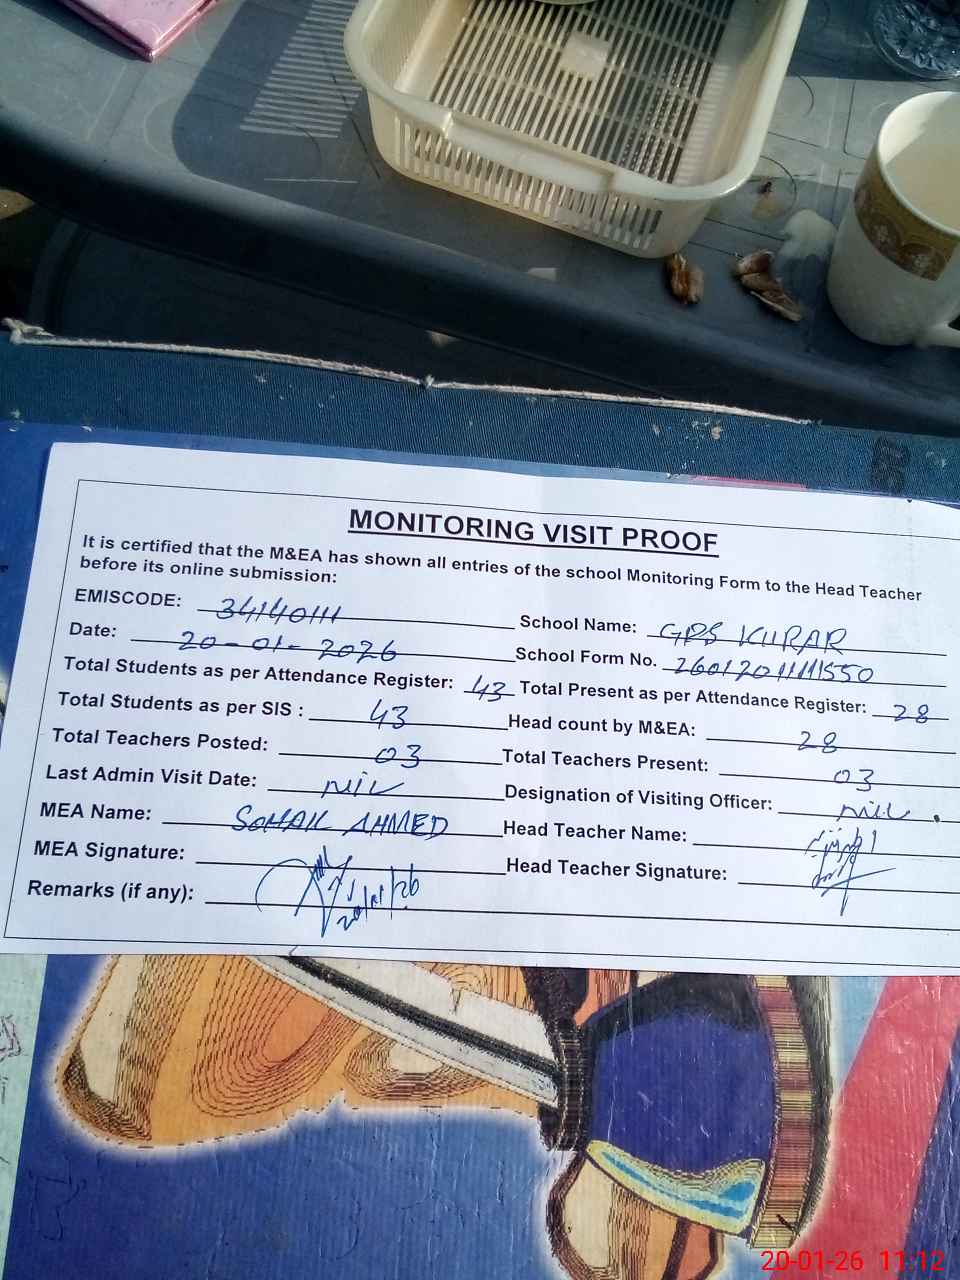 MONITORING VISIT PROOF
It is certified that the M&EA has shown all entries of the school Monitoring Form to the Head Teacher
before its online submission:
EMISCODE: 34140111 School Name: GPS KURAR
Date: 20-01-2026 School Form No. 26012011111550
Total Students as per Attendance Register: 43 Total Present as per Attendance Register: 28
Total Students as per SIS : 43 Head count by M&EA: 28
Total Teachers Posted: 03 Total Teachers Present: 03
Last Admin Visit Date: NIL Designation of Visiting Officer: NIL.
MEA Name: SOHAIL AHMED Head Teacher Name:
MEA Signature: Head Teacher Signature:
Remarks (if any): 20/01/26
20-01-26 11:12